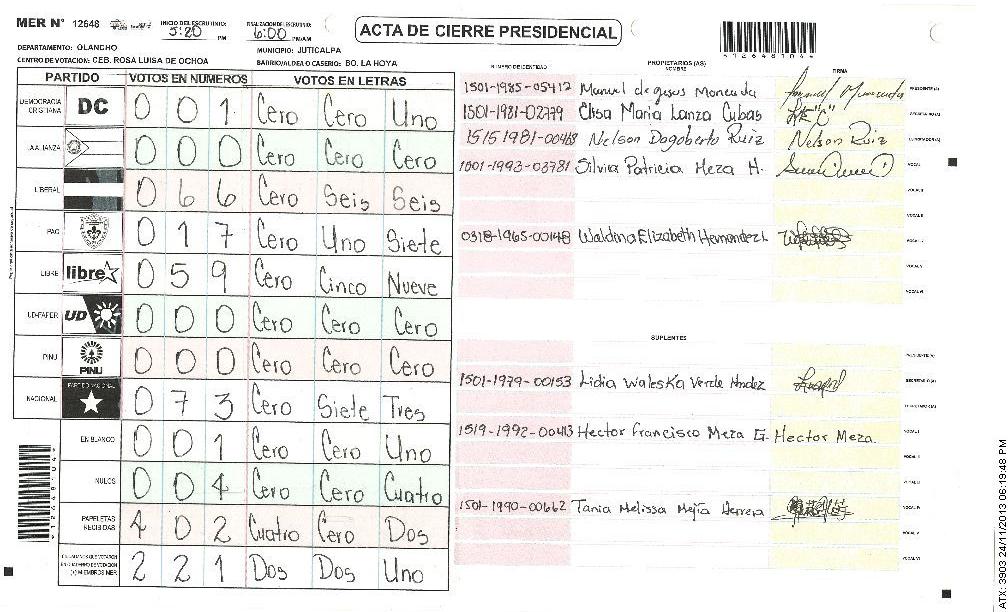 MER N° 12648 INICIO DEL ESCRUTINIO: 5:20 PM FINALIZACION DEL ESCRUTINIO: 6:00 PM/AM
ACTA DE CIERRE PRESIDENCIAL
DEPARTAMENTO: OLANCHO MUNICIPIO: JUTICALPA
CENTRO DE VOTACION: CEB. ROSA LUISA DE OCHOA BARRIO/ALDEA O CASERIO: BO. LA HOYA
PARTIDO VOTOS EN NUMEROS VOTOS EN LETRAS
DEMOCRACIA CRISTIANA DC 0 0 1 Cero Cero Uno
0 0 0 Cero Cero Cero
LIBERAL 0 6 6 Cero Seis Seis
PAC 0 1 7 Cero Uno Siete
LIBRE libre 0 5 9 Cero Cinco Nueve
UD-FAPER UD 0 0 0 Cero Cero Cero
PINU PINU 0 0 0 Cero Cero Cero
NACIONAL PARTIDO NACIONAL 0 7 3 Cero Siete Tres
EN BLANCO 0 0 1 Cero Cero Uno
NULOS 0 0 4 Cero Cero Cuatro
PAPELETAS RECIBIDAS 4 0 2 Cuatro Cero Dos
2 2 1 Dos Dos Uno
NUMERO DE IDENTIDAD PROPIETARIOS (AS) NOMBRE FIRMA
1501-1985-05412 Manuel de Jesus Moncada
1501-1981-02779 Elsa Maria Lanza Cubas
1515 1981-00468 Nelson Dagoberto Ruiz Nelson Ruiz
1001-1993-03781 Silvia Patricia Meza H.
0318-1965-00148 Waldina Elizabeth Hernandez L
SUPLENTES
1501-1979-00153 Lidia Waleska Verde
1519-1992-00413 Hector Francisco Meza G. Hector Meza.
1501-1990-00662 Tania Melissa Mejia Herrera
ATX: 3903 24/11/2013 06:19:48 PM